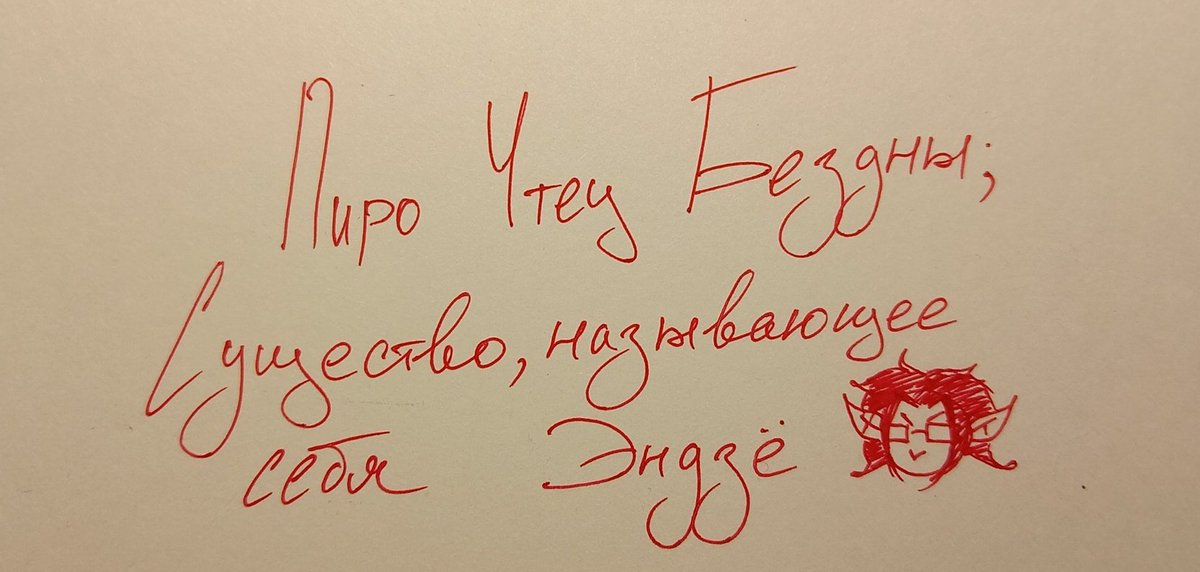 Пиро Чтец Бездны;
Существо, называющее
себя Эндзё